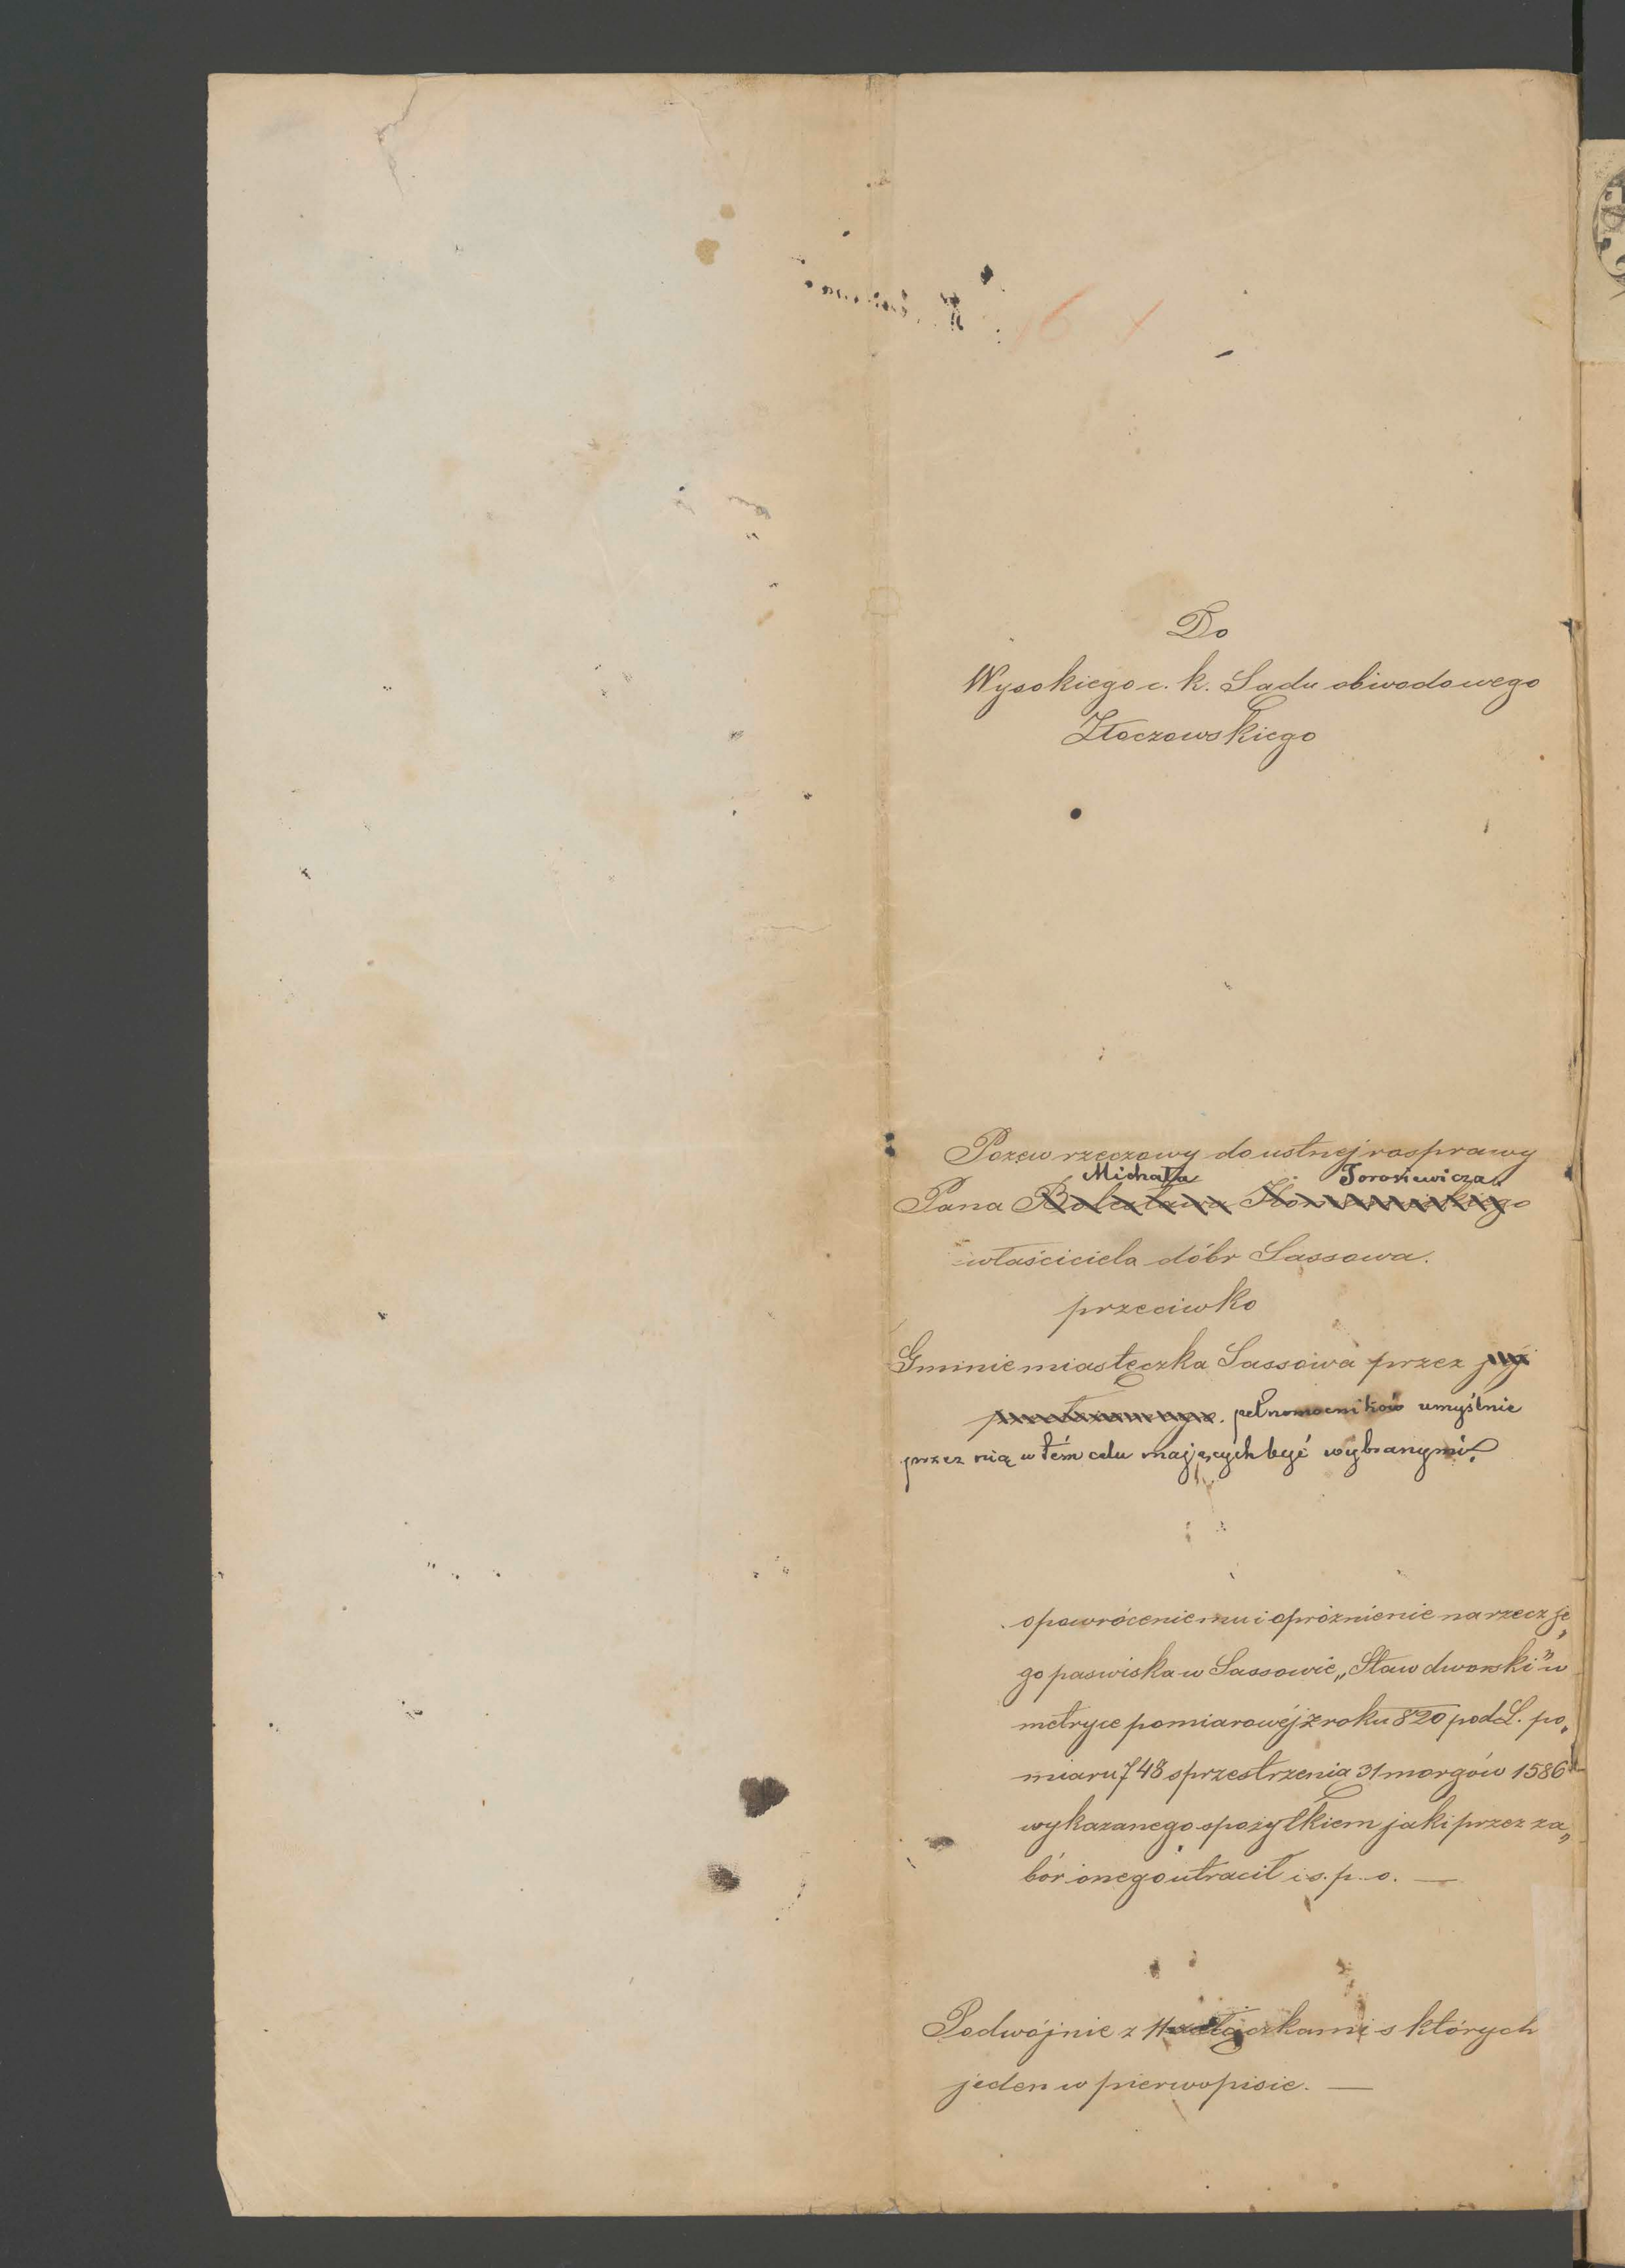 Do
Wysokiego c. k. Sądu obwodowego
Złoczowskiego
Pozew rzeczowy do ustnej rosprawy
Michała Torosiewicza
Pana Bolesława
właściciela dóbr Sassowa.
przeciwko
Gminie miasteczka Sassowa przez jej
pełnomocników umyślnie
przez nią w tém celu mających być wybranymi.
o powrócenie mu i opróżnienie na rzecz je„
go paswiska w Sassowie „Staw dworski" w
metryce pomiarowéj z roku 820 pod L. po„
miaru 748 s przestrzenią 31 morgów 1586
wykazanego s pożytkiem jaki przez za„
bór onego utracił i s. p. o. —
Podwójnie z 11 załączkami s których
jeden w pierwopisie. —